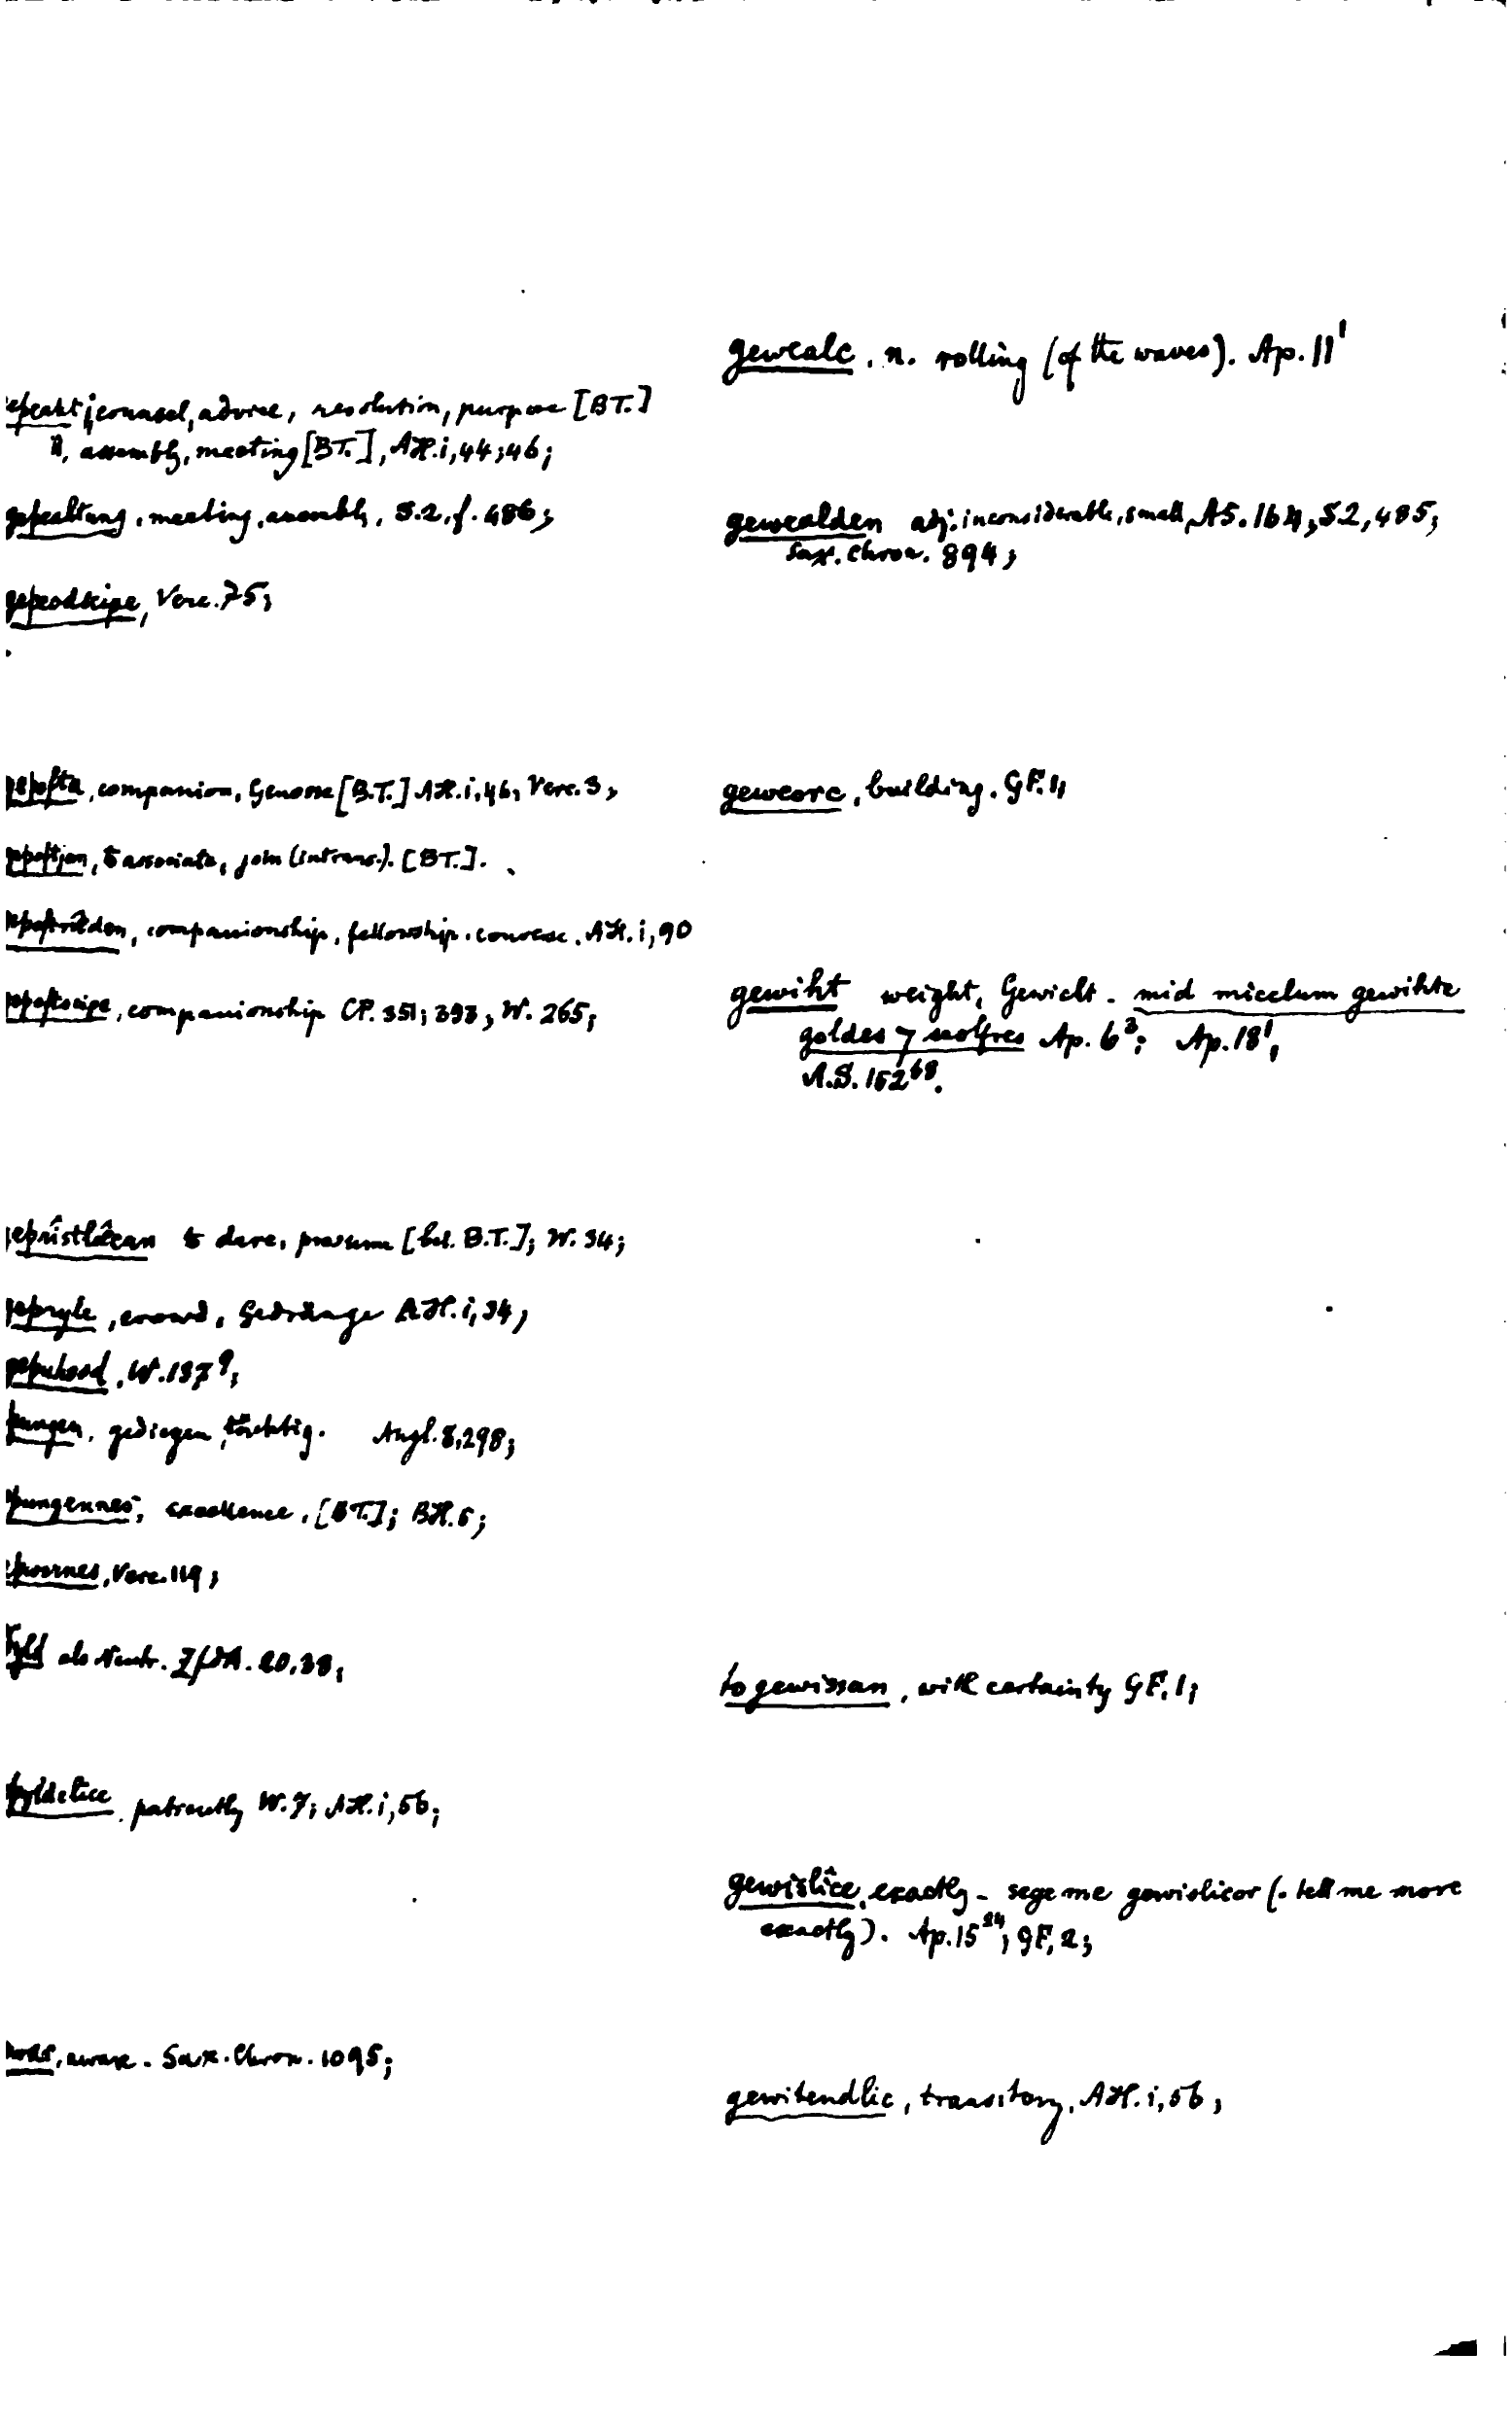 geþeaht, counsel, advice, resolution, purpose [BT.]
II, assembly, meeting [BT.], AH. i, 44; 46;
geþeahtung, meeting, assembly, S.2, f. 486;
geþeodscipe, Verc. 75;
geþofta, companion, Genosse [B.T.] AH. i, 46, Verc. 3,
geþoftian, to associate, join (intrans.). [BT.].
geþoftræden, companionship, fellowship, converse. AH. i, 90
geþoftscipe, companionship CP. 351; 393, W. 265;
geþrîstlǣcan to dare, presume [bel. B.T.]; W. 34;
geþryle, crowd, Gedränge AH. i, 34,
W. 137⁹;
þungen, gediegen, tüchtig. Angl. 8, 298;
þungennes, excellence, [BT.]; BH. 5;
Verc. 119;
als Neutr. ZfdA. 20, 38;
þyldelice, patiently W. 7; AH. i, 56;
aware. Sax. Chron. 1095;
gewealc, n. rolling (of the waves). Ap. 11¹
gewealden adj. inconsiderable, small, AS. S2, 485;
Sax. Chron. 894;
geweorc, building. GF. 1,
gewiht weight, Gewicht. mid micclum gewihte
goldes ⁊ seolfres Ap. 6³; Ap. 18¹,
A.S. 152⁶⁸.
to gewissan, with certainty GF. 1;
gewislîce, exactly - sege me gewislicor (. tell me more
exactly). Ap. 15²⁴; GF. 2;
gewitendlic, transitory, AH. i, 56,